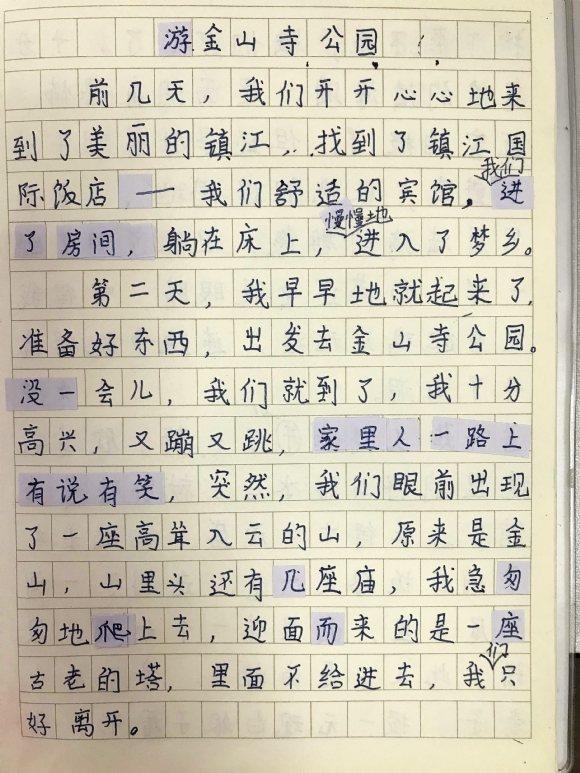 游金山寺公园
前几天，我们开开心心地来
到了美丽的镇江，找到了镇江国
我们
际饭店——我们舒适的宾馆，进
慢慢地
了房间，躺在床上，进入了梦乡。
第二天，我早早地就起来了，
准备好东西，出发去金山寺公园。
没一会儿，我们就到了，我十分
高兴，又蹦又跳，家里人一路上
有说有笑，突然，我们眼前出现
了一座高耸入云的山，原来是金
山，山里头还有几座庙，我急匆
匆地爬上去，迎面而来的是一座
们
古老的塔，里面不给进去，我只
好离开。